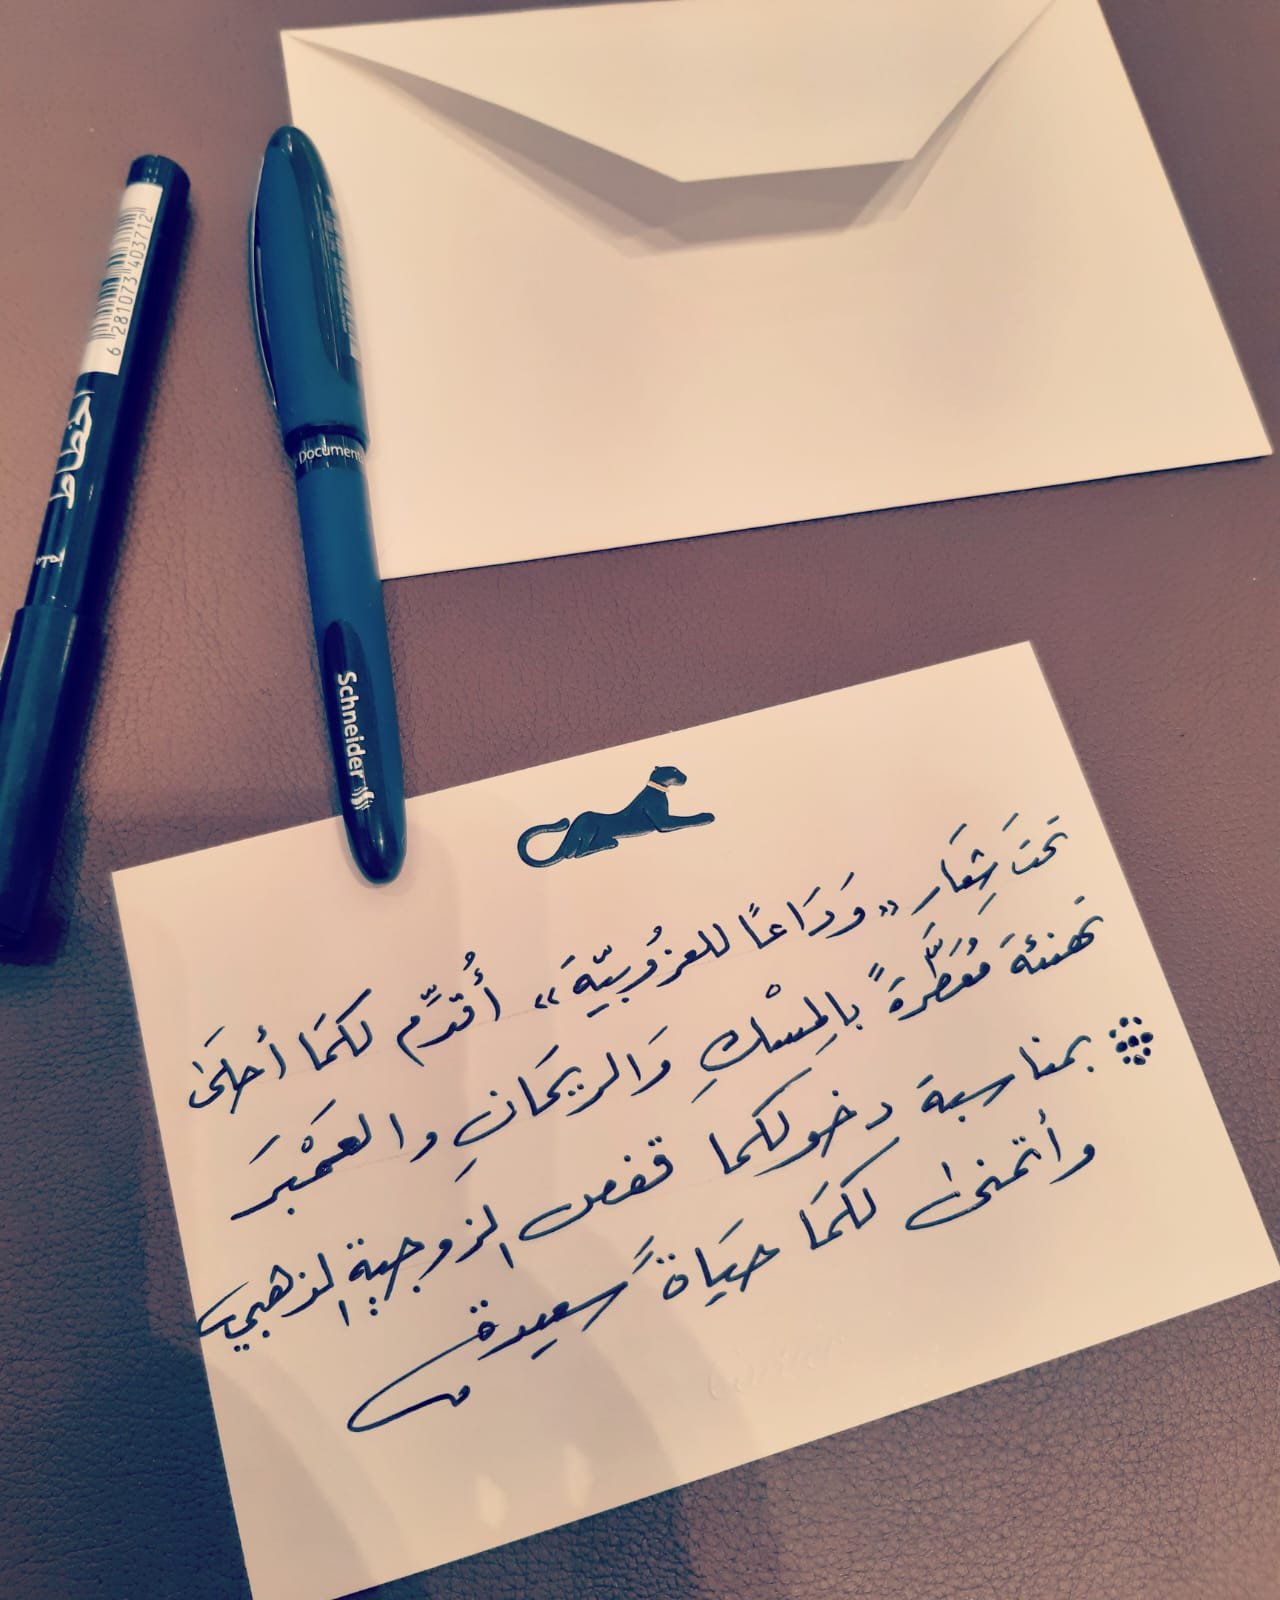 6 281073 403712
Document
Schneider
تحتَ شِعَارِ «وَدَاعًا للعزُوبيّةَ» أُقدِّم لكمَا أحلَى
تهنئةَ مُعَطَّرةً بالمِسْكِ وَالريحَانِ والعَمْبَرَ
بمناسبة دخولكما قفص الزوجيةِ الذهبي
وأتمنىٰ لكمَا حيَاةً سعيدة
Cartier